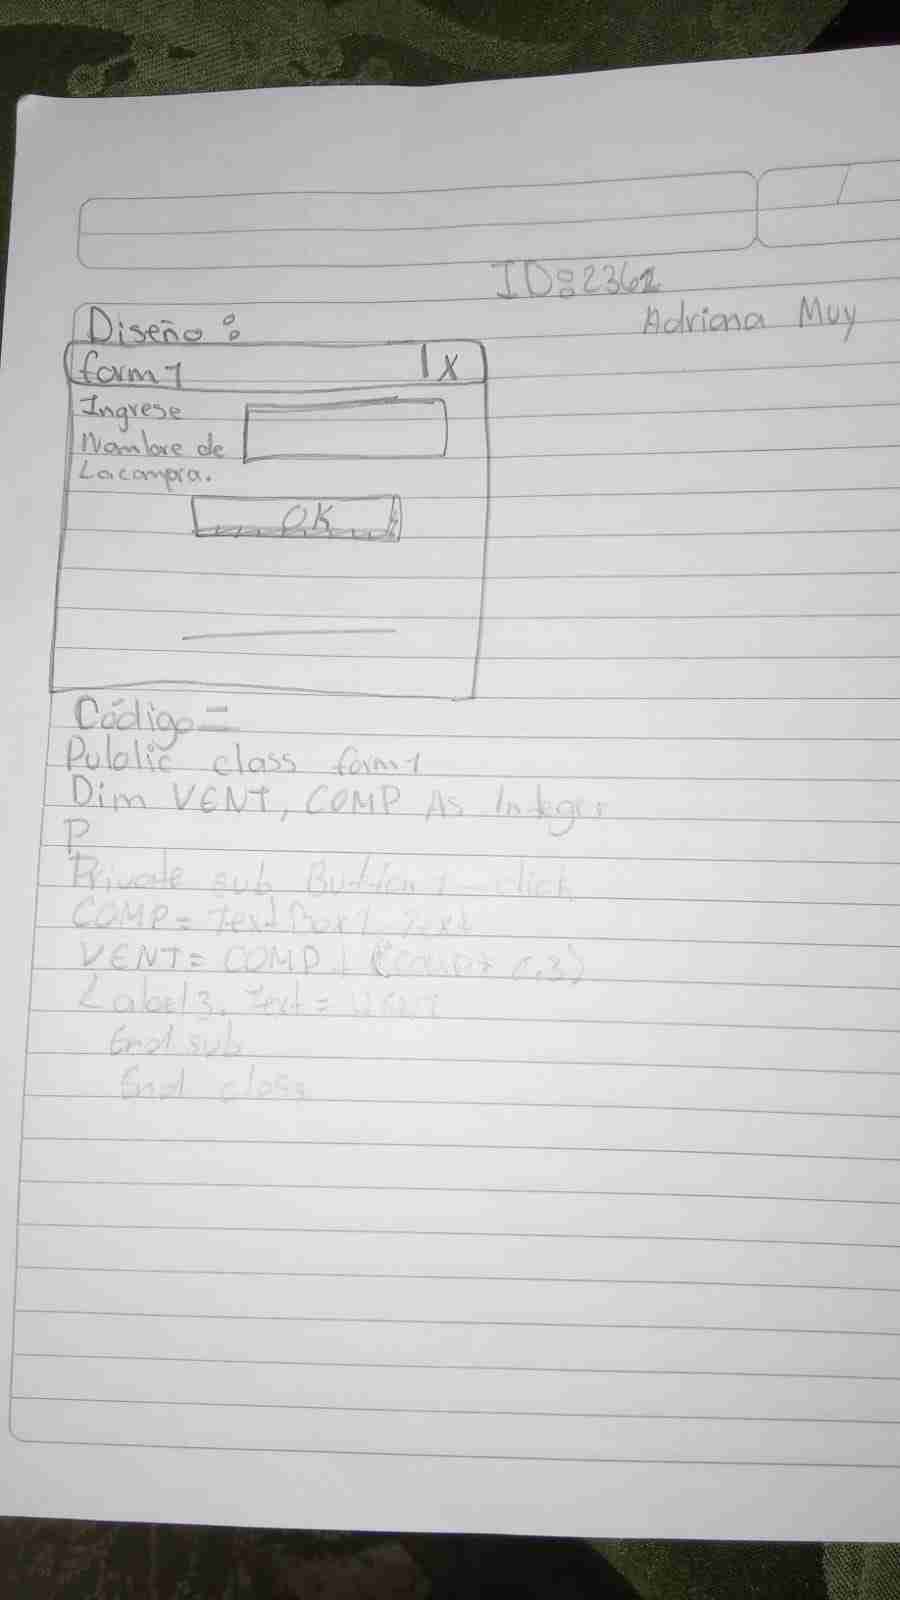 ID: 2362
Adriana Muy
Diseño:
form1 | X
Ingrese
Nombre de
La compra.
OK
Código =
Public class form1
Dim VENT, COMP As Integer
P
Private sub Button1_click
COMP = TextBox1.Text
VENT = COMP + (COMP * 0.3)
Label3. Text = VENT
End sub
End class